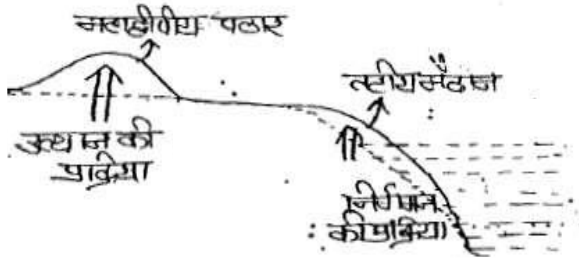 महाद्वीपीय पठार
तटीय मैदान
उत्थान की
प्रक्रिया
निर्गमन
की प्रक्रिया